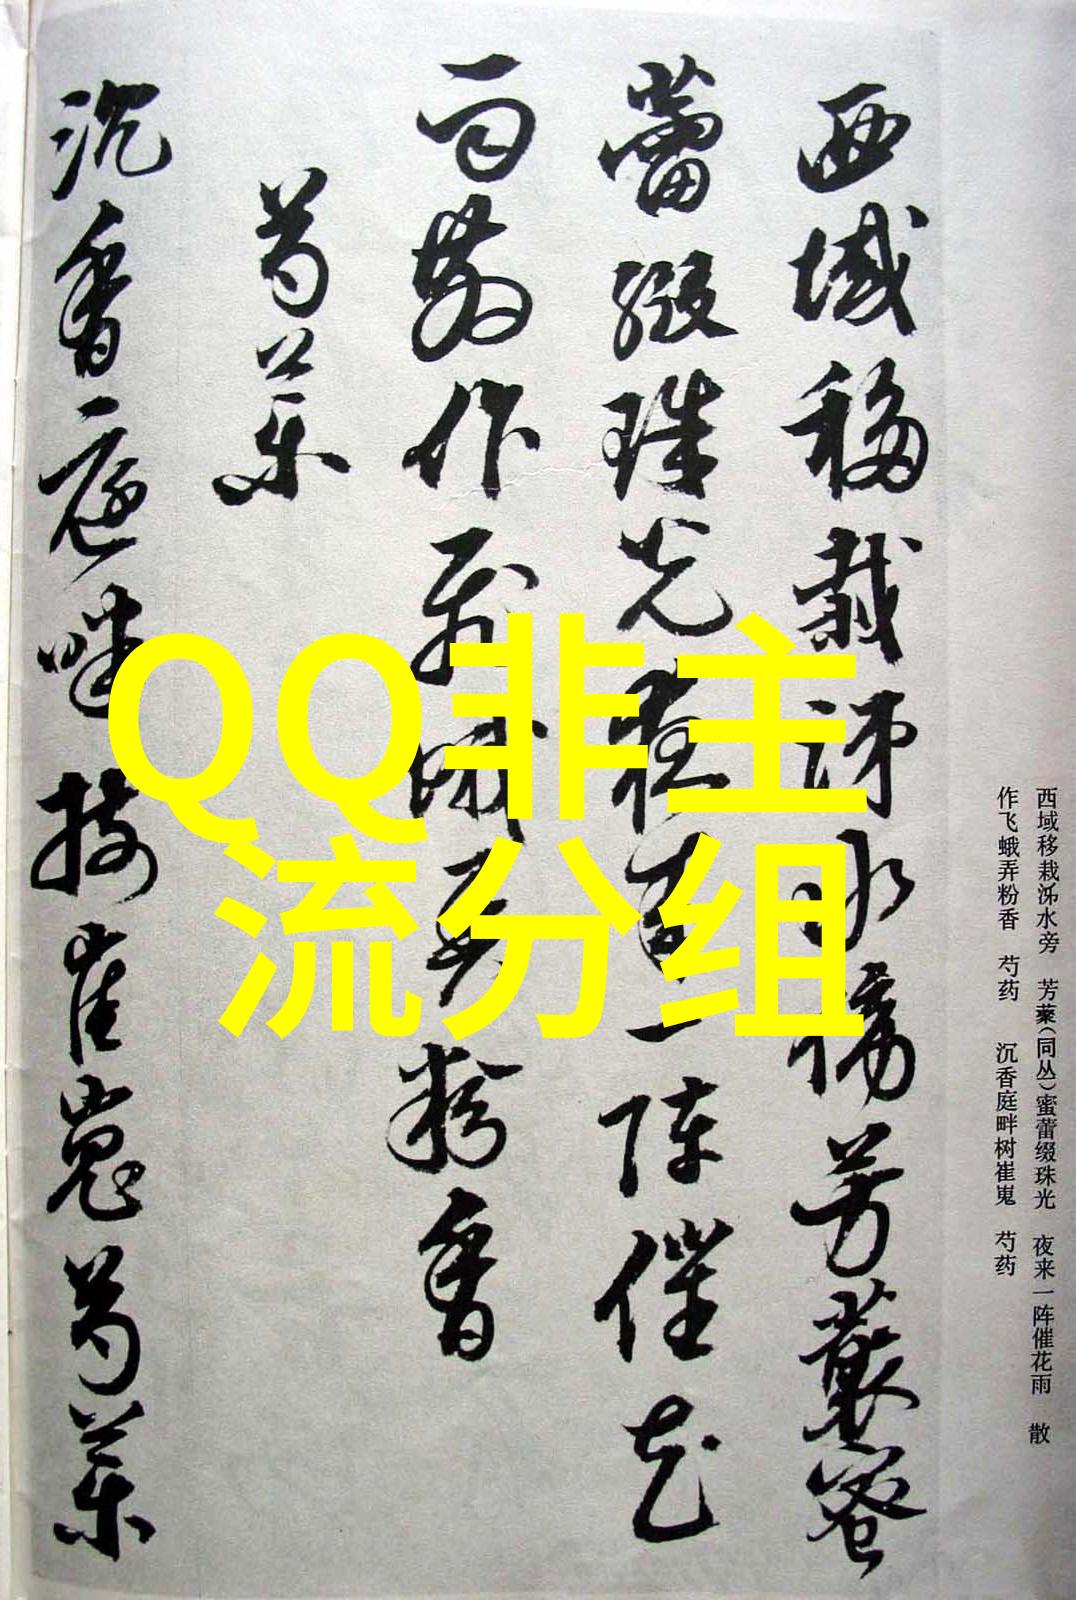 西域移栽泲水旁　芳藂(同丛)蜜蕾缀珠光　夜来一阵催花雨　散
作飞蛾弄粉香　芍药　沉香庭畔树崔嵬　芍药
西域移栽泲水傍芳藂蜜
蕾綴珠光夜来一阵催花
雨散作飛蛾弄粉香
芍藥
沉香庭畔樹崔嵬芍藥
QQ非主
流分组